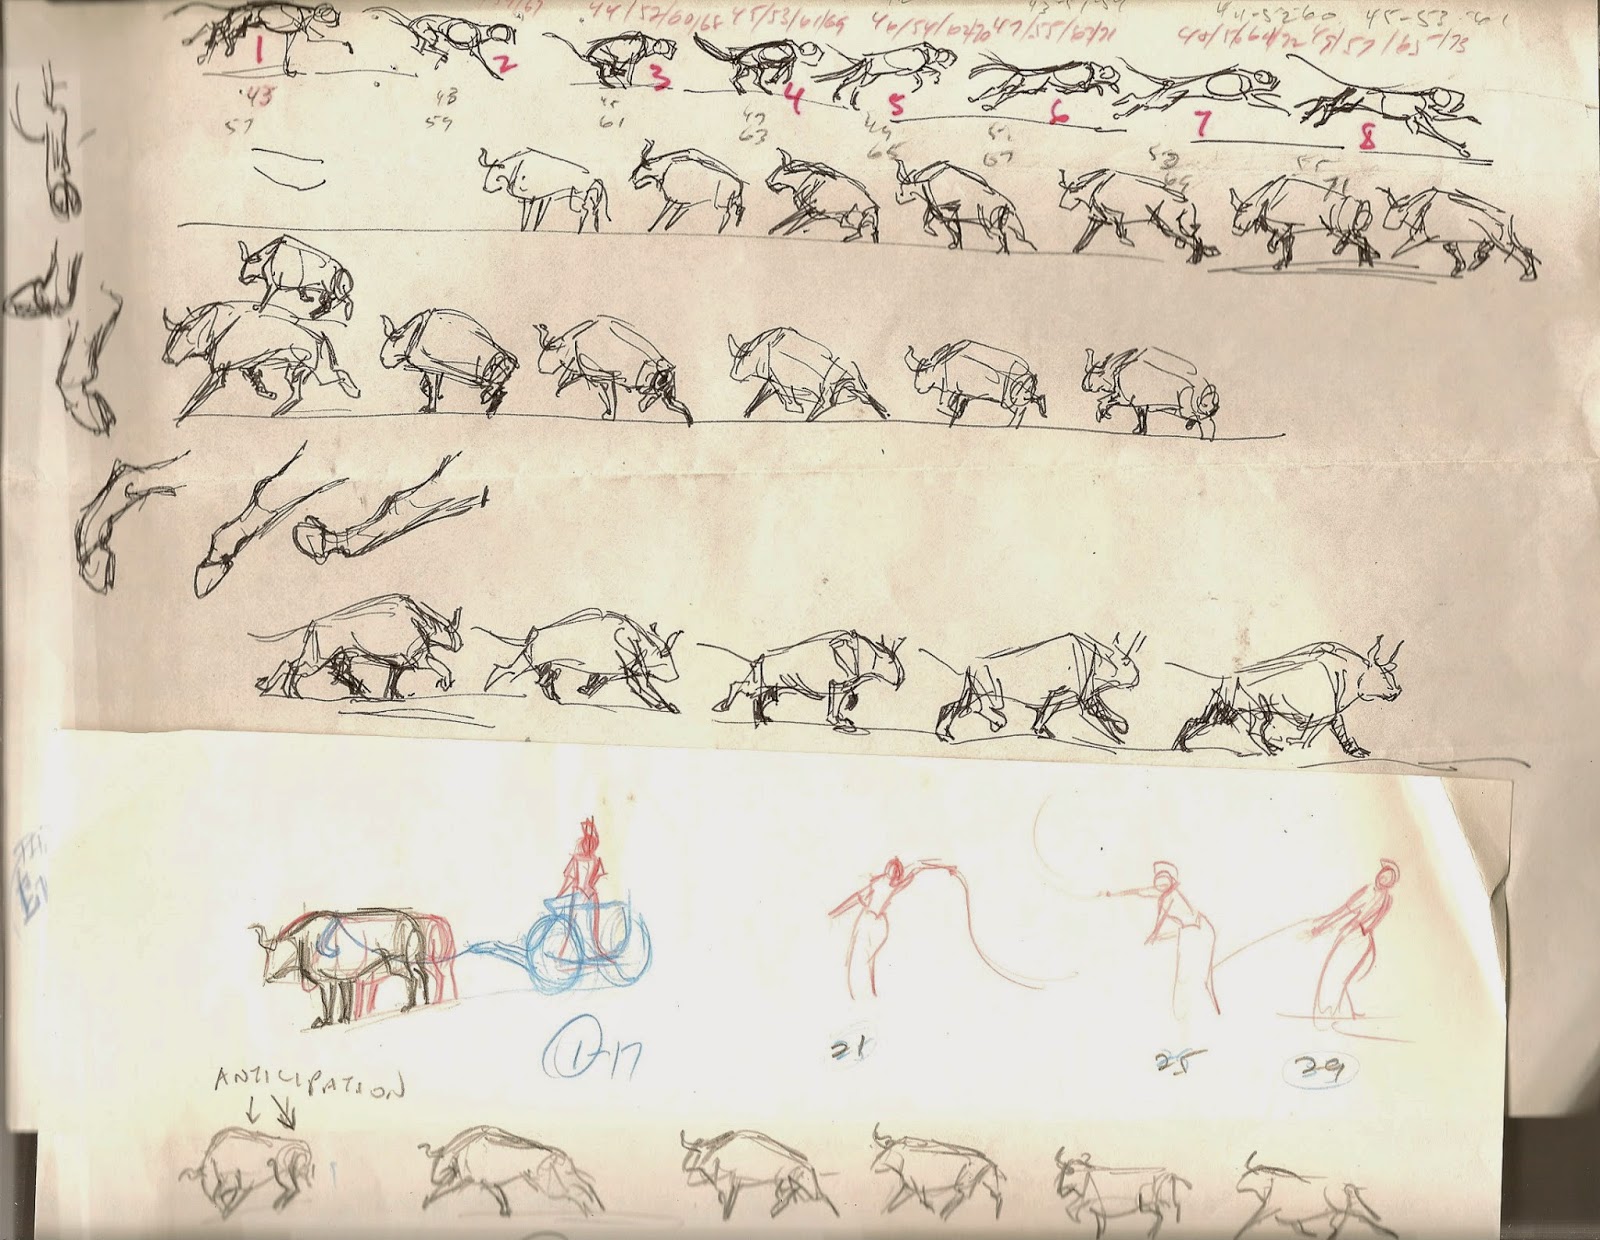 44/52/60/68 45/53/61/69 46/54/62/70 47/55/63/71
44-52-60 45-53-61
1 2 3 4 5 6 7 8
43 43 45 47 49 51 53 55
57 59 61 63 65 67 69 71
1-17 21 25 29
ANTICIPATION